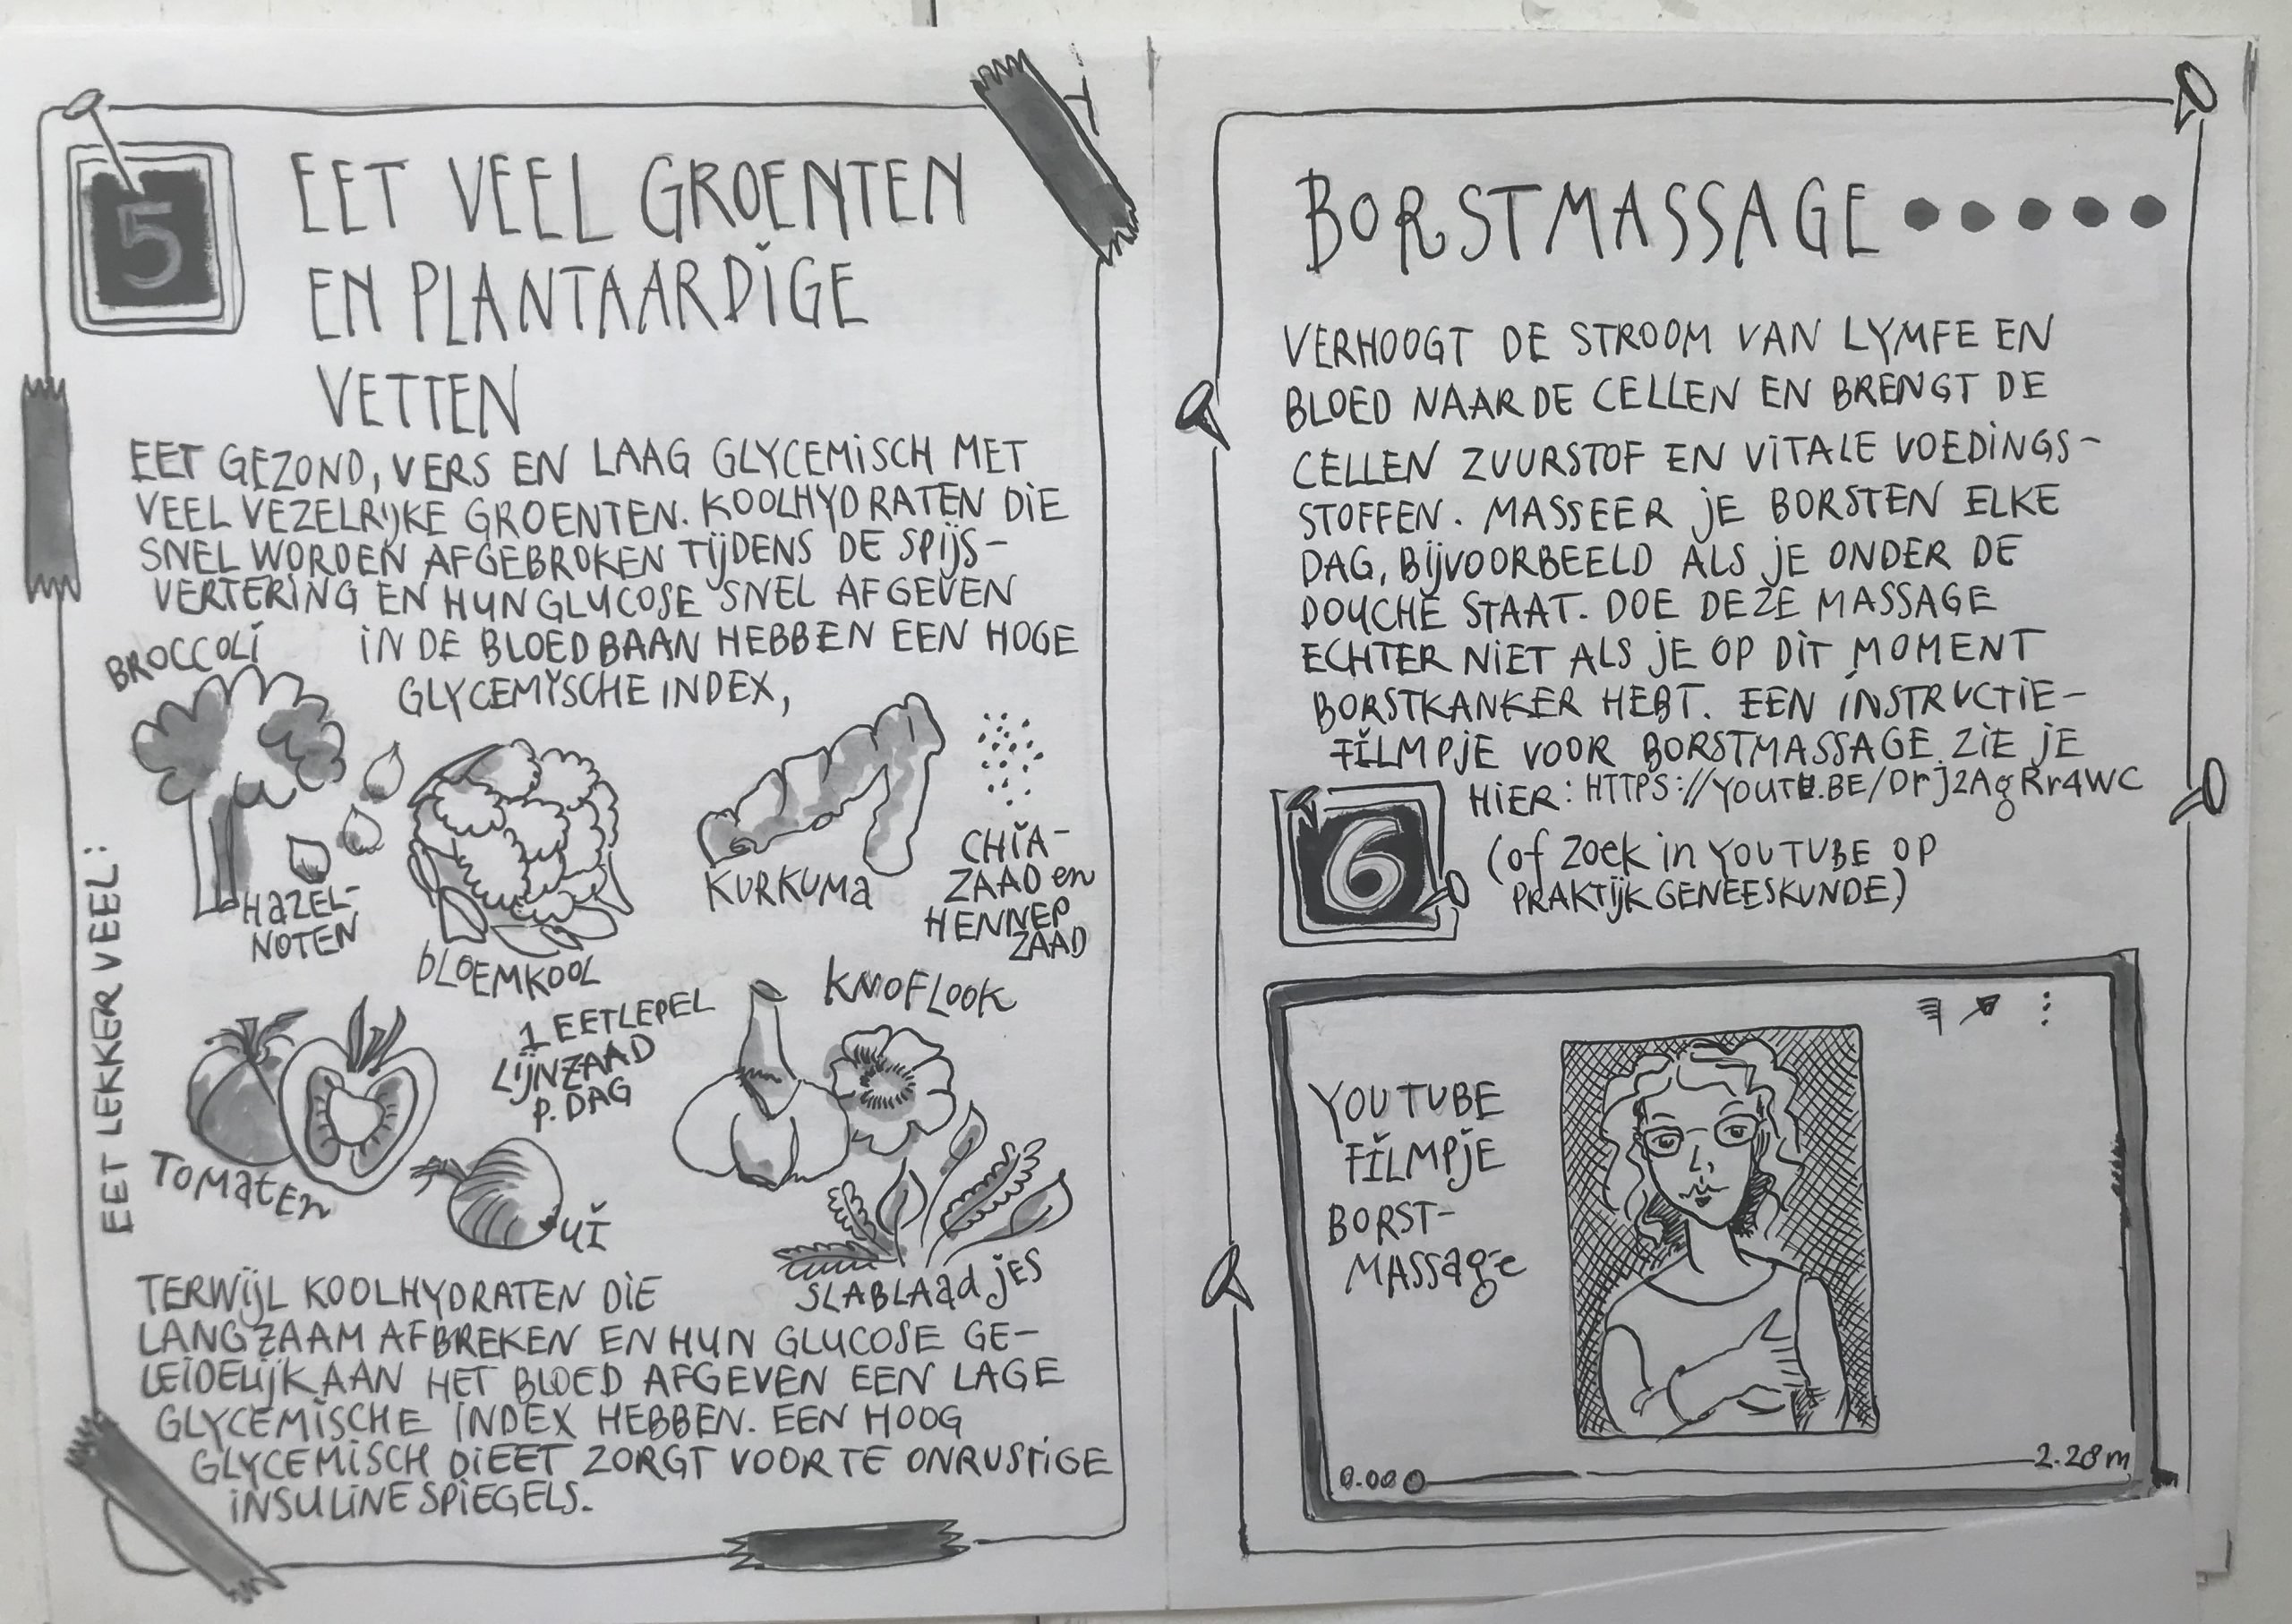 5
EET VEEL GROENTEN
EN PLANTAARDIGE
VETTEN
EET GEZOND, VERS EN LAAG GLYCEMISCH MET
VEEL VEZELRIJKE GROENTEN. KOOLHYDRATEN DIE
SNEL WORDEN AFGEBROKEN TIJDENS DE SPIJS-
VERTERING EN HUN GLUCOSE SNEL AFGEVEN
IN DE BLOEDBAAN HEBBEN EEN HOGE
GLYCEMISCHE INDEX,
EET LEKKER VEEL:
BROCCOLI
HAZEL-
NOTEN
BLOEMKOOL
KURKUMA
CHIA-
ZAAD en
HENNEP
ZAAD
TOMATEN
1 EETLEPEL
LIJNZAAD
P. DAG
UI
KNOFLOOK
SLABLAADJES
TERWIJL KOOLHYDRATEN DIE
LANGZAAM AFBREKEN EN HUN GLUCOSE GE-
LEIDELIJK AAN HET BLOED AFGEVEN EEN LAGE
GLYCEMISCHE INDEX HEBBEN. EEN HOOG
GLYCEMISCH DIEET ZORGT VOOR TE ONRUSTIGE
INSULINESPIEGELS.
BORSTMASSAGE •••••
VERHOOGT DE STROOM VAN LYMFE EN
BLOED NAAR DE CELLEN EN BRENGT DE
CELLEN ZUURSTOF EN VITALE VOEDINGS-
STOFFEN. MASSEER JE BORSTEN ELKE
DAG, BIJVOORBEELD ALS JE ONDER DE
DOUCHE STAAT. DOE DEZE MASSAGE
ECHTER NIET ALS JE OP DIT MOMENT
BORSTKANKER HEBT. EEN INSTRUCTIE-
FILMPJE VOOR BORSTMASSAGE ZIE JE
HIER: HTTPS://YOUTU.BE/Drj2AgRr4WC
6
(of zoek in YOUTUBE OP
PRAKTIJK GENEESKUNDE)
YOUTUBE
FILMPJE
BORST-
MASSAGE
0.00
2.28m